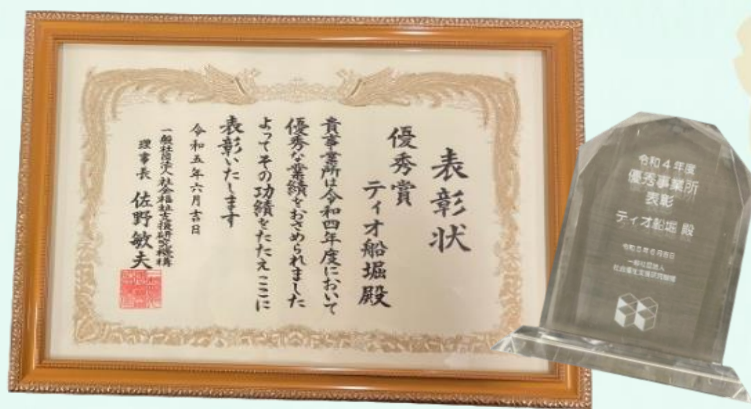 表彰状
優秀賞
ティオ船堀殿
貴事業所は令和四年度において
優秀な業績をおさめられました
よってその功績をたたえここに
表彰いたします
令和五年六月吉日
一般社団法人社会福祉支援研究機構
理事長 佐野敏夫
令和4年度
優秀事業所
表彰
ティオ船堀 殿
一般社団法人
社会福祉支援研究機構